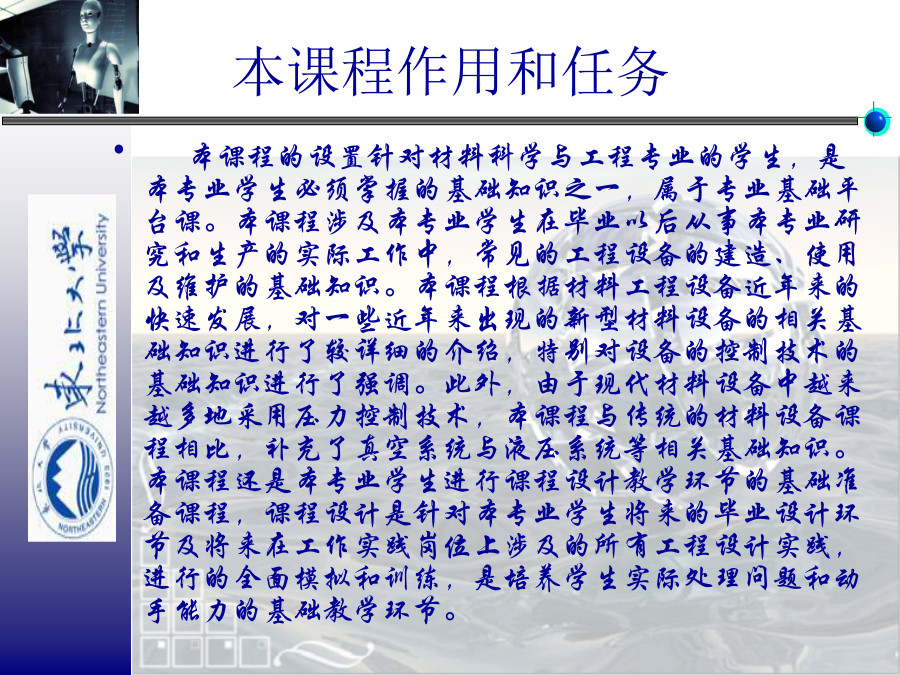 本课程作用和任务
• 本课程的设置针对材料科学与工程专业的学生，是
本专业学生必须掌握的基础知识之一，属于专业基础平
台课。本课程涉及本专业学生在毕业以后从事本专业研
究和生产的实际工作中，常见的工程设备的建造、使用
及维护的基础知识。本课程根据材料工程设备近年来的
快速发展，对一些近年来出现的新型材料设备的相关基
础知识进行了较详细的介绍，特别对设备的控制技术的
基础知识进行了强调。此外，由于现代材料设备中越来
越多地采用压力控制技术，本课程与传统的材料设备课
程相比，补充了真空系统与液压系统等相关基础知识。
本课程还是本专业学生进行课程设计教学环节的基础准
备课程，课程设计是针对本专业学生将来的毕业设计环
节及将来在工作实践岗位上涉及的所有工程设计实践，
进行的全面模拟和训练，是培养学生实际处理问题和动
手能力的基础教学环节。
東北大学
Northeastern University
NORTHEASTERN UNIVERSITY 1923